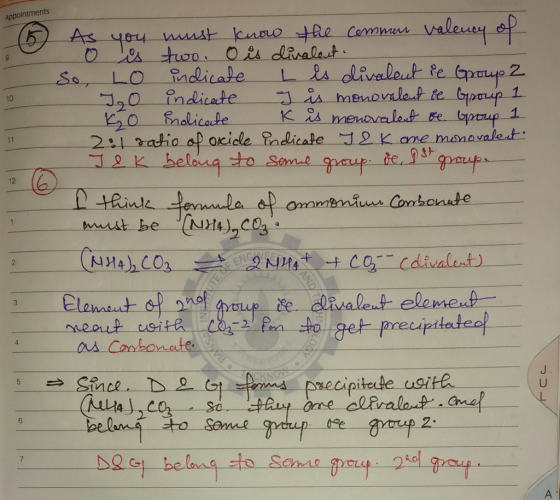 Appointments
(5) As you must know the common valency of
9 O is two. O is divalent.
So, LO indicate L is divalent ie Group 2
10 J2O indicate J is monovalent ie Group 1
K2O indicate K is monovalent ie. Group 1
11 2:1 ratio of oxide indicate J & K are monovalent.
J & K belong to same group. ie, 1st group.
12 (6)
I think formula of ammonium Carbonate
1 must be (NH4)2CO3.
2 (NH4)2CO3 ⇌ 2NH4+ + CO3-- (divalent)
3 Element of 2nd group ie. divalent element
react with CO3-2 ion to get precipitated
4 as Carbonate.
5 ⇒ Since. D & G forms precipitate with
(NH4)2CO3. so. they are divalent. and
6 belong to same group ie group 2.
7 D&G belong to same group. 2nd group.
JUL